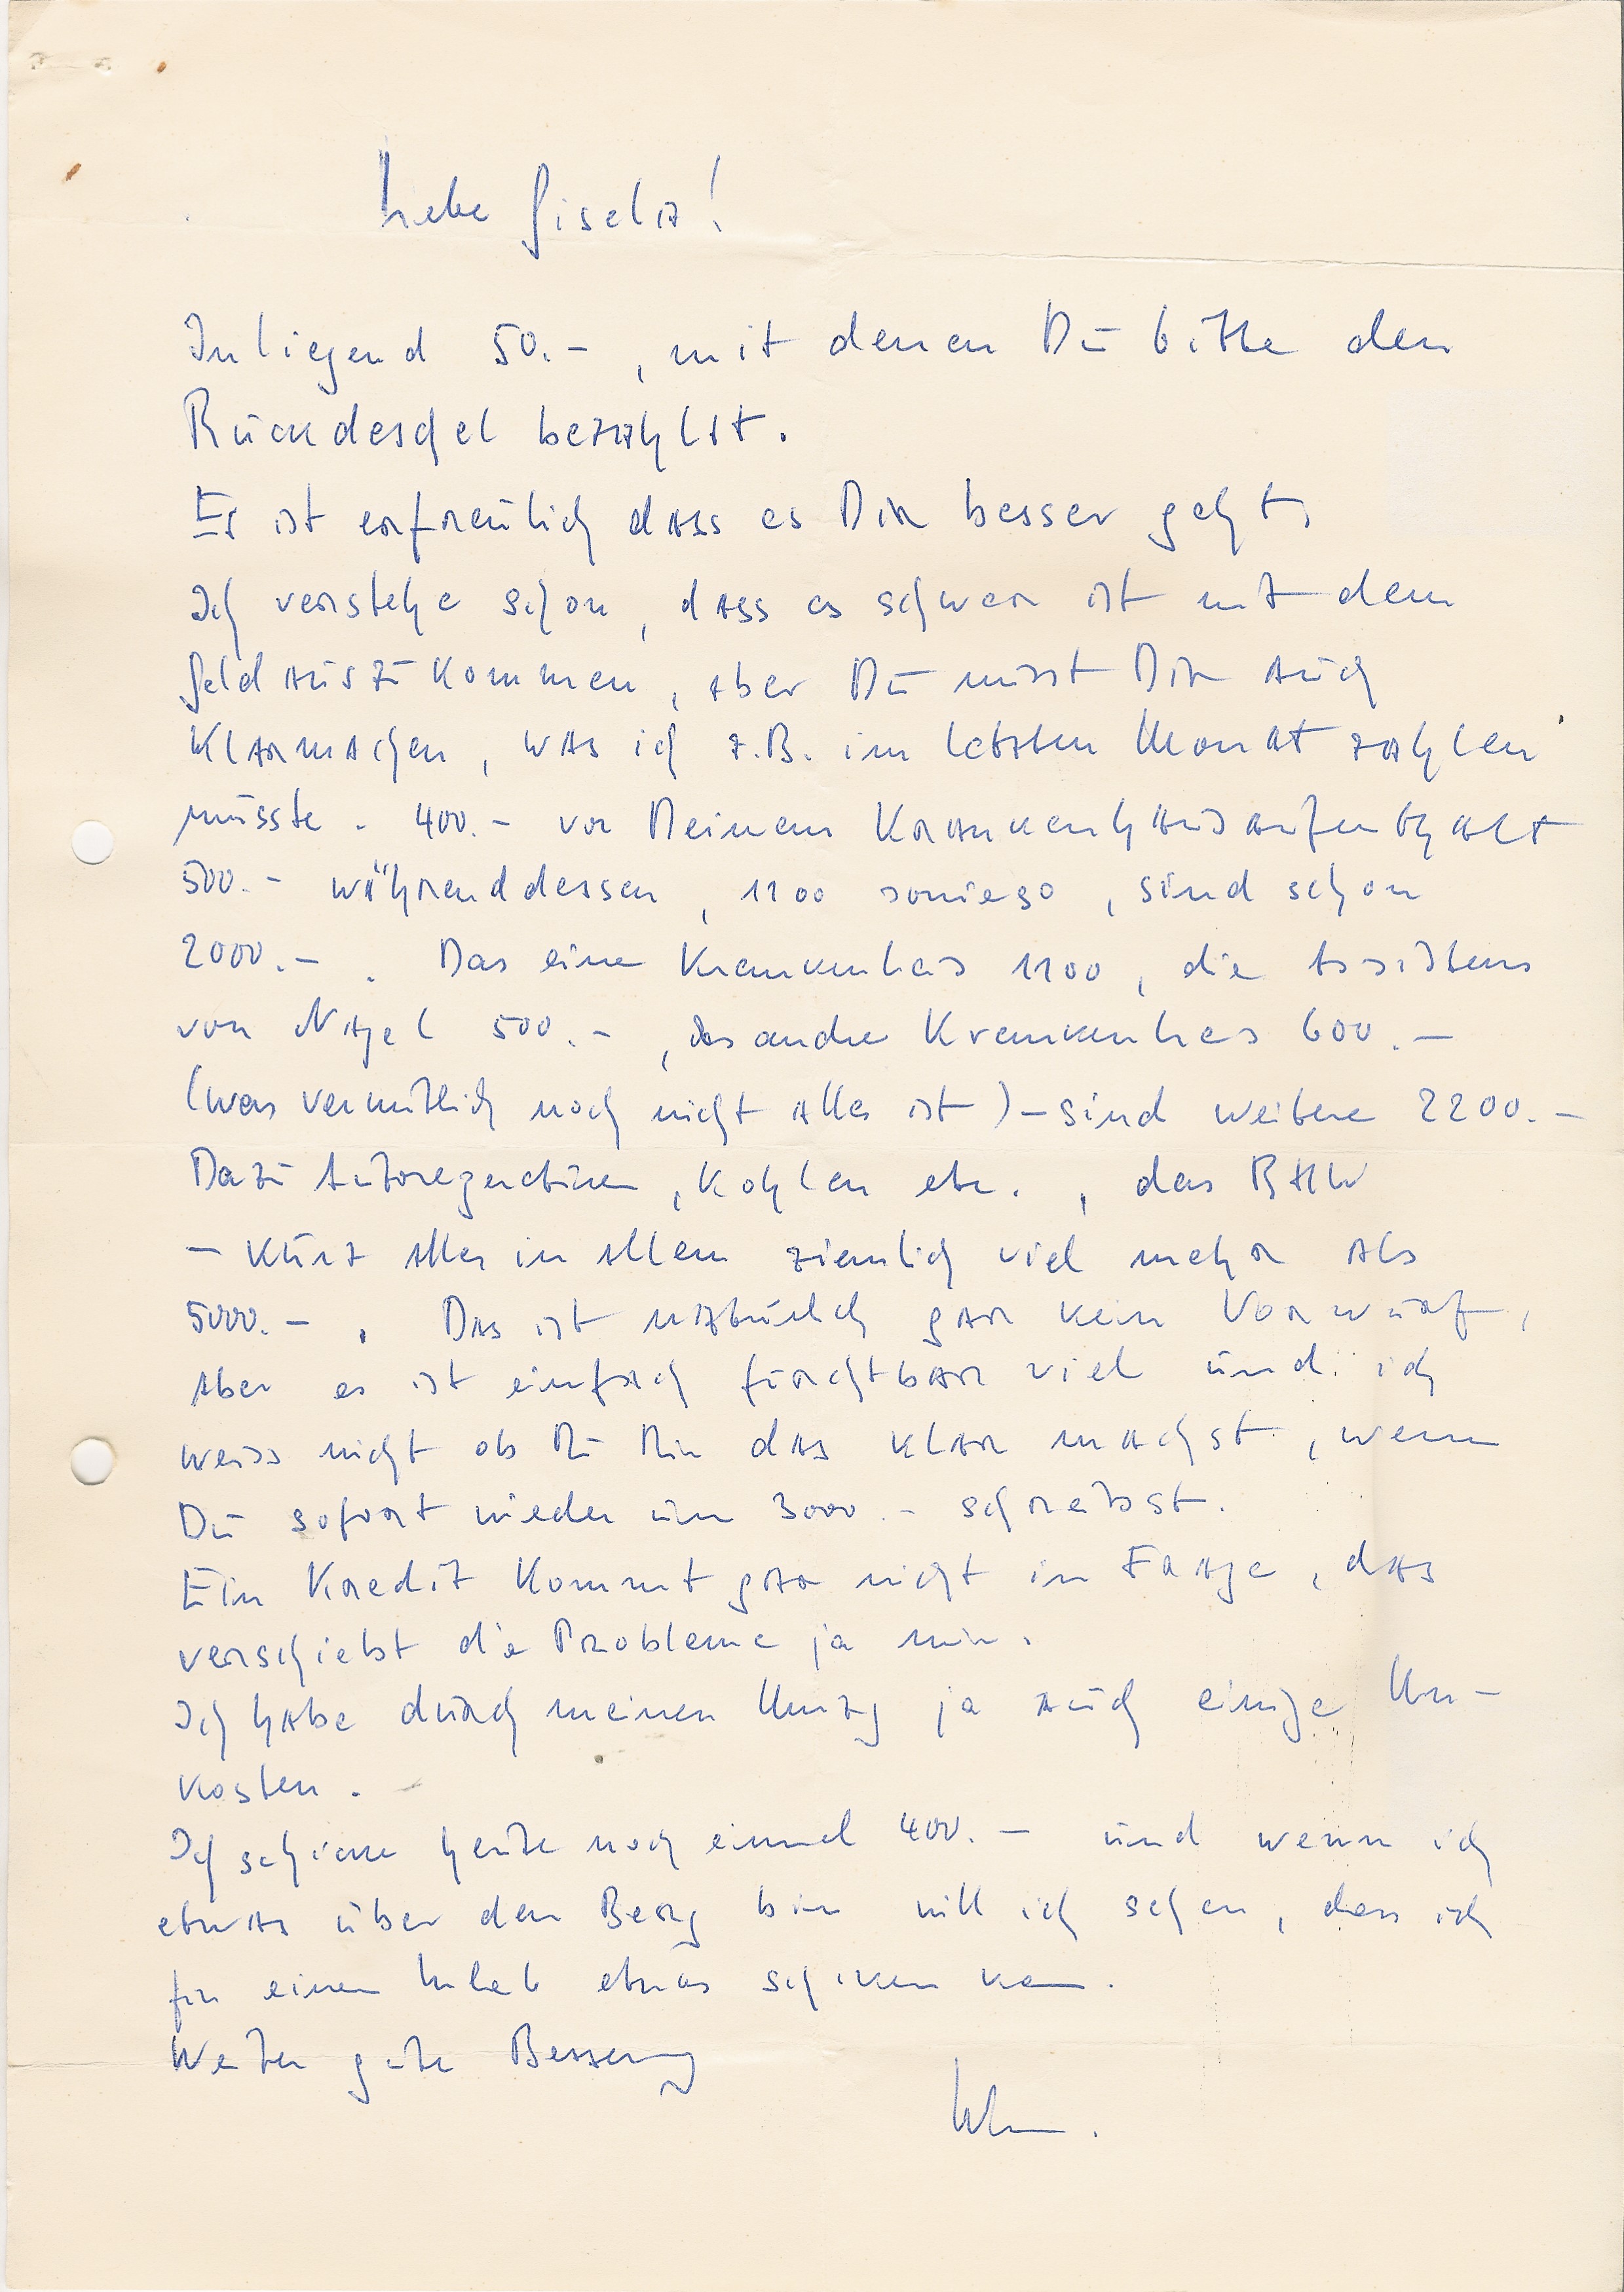 Liebe Gisela!
Inliegend 50.- , mit denen Du bitte den
Rückdeschel bezahlst.
Es ist erfreulich dass es Dir besser geht,
Ich verstehe schon, dass es schwer ist mit dem
Geld auszukommen, aber Du musst Dir auch
klarmachen, was ich z.B. im letzten Monat zahlen
müsste. 400.- vor Deinem Krankenhausaufenthalt
500.- währenddessen, 1100 sowieso, sind schon
2000.- . Das eine Krankenhaus 1100, die Assistenz
von Nagel 500.- , das andre Krankenhaus 600.-
(was vermutlich noch nicht alles ist) - sind weitere 2200.-
Dazu Autoreperaturen, Kohlen etc. , das BHW
- kurz alles in allem ziemlich viel mehr als
5000.- . Das ist natürlich gar kein Vorwurf,
aber es ist einfach furchtbar viel und ich
weiss nicht ob Du Dir das klar machst, wenn
Du sofort wieder um 3000.- schreibst.
Ein Kredit kommt gar nicht in Frage, das
verschiebt die Probleme ja nur.
Ich habe durch meinen Umzug ja auch einige Un-
kosten.
Ich schicke heute noch einmal 400.- und wenn ich
etwas über den Berg bin will ich sehen, dass ich
für einen Urlaub etwas schicken kann.
Weiter gute Besserung